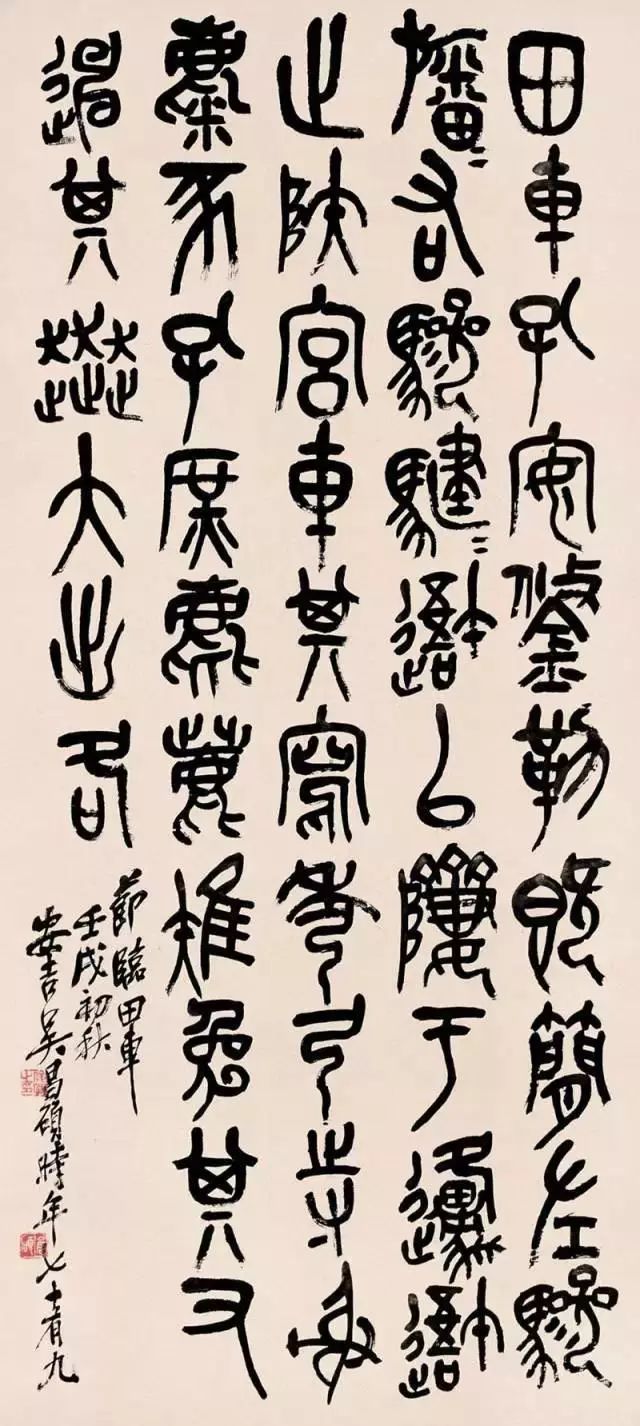 田車孔安鋚勒既簡左驂
旛〻右驂騝〻吾以隮于邍吾
止陝宮車其寫秀弓寺射
麋豕孔庶麀鹿雉兔其又
其奔大出各
節臨田車
壬戌初秋
安吉吳昌碩時年七十有九